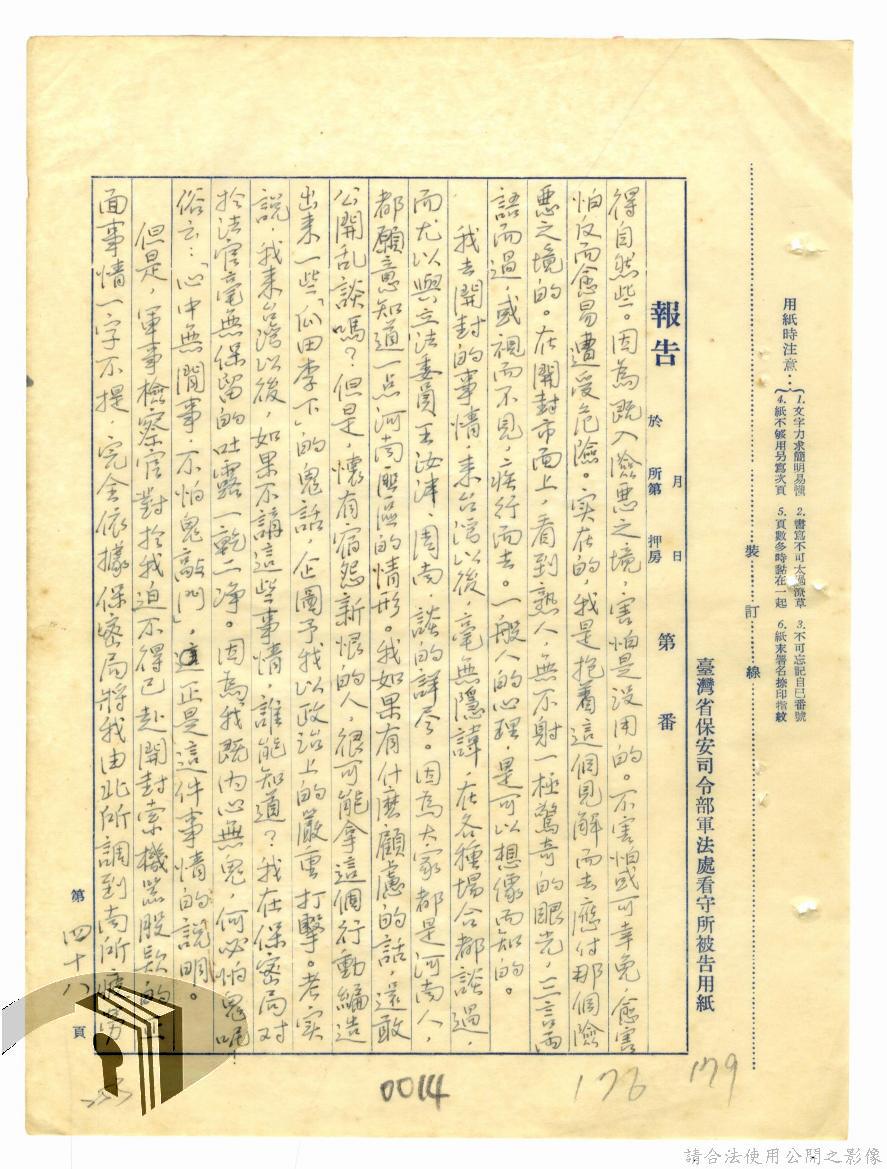 用紙時注意：
1.文字力求簡明易懂 2.書寫不可太過潦草 3.不可忘記自己番號
4.紙不够用另寫次頁 5.頁數多時黏在一起 6.紙末署名捺印指紋
裝訂線
臺灣省保安司令部軍法處看守所被告用紙
報告 於 月 日 所第 押房 第 番
得自然些。因為既入險惡之境，害怕是沒用的。不害怕或可幸免，愈害
怕反而愈易遭受危險。实在的，我是抱着這個見解而去應付那個險
惡之境的。在開封市面上，看到熟人，無不射一極驚奇的眼光，三言両
語而過，或視而不見，疾行而去。一般人的心理，是可以想像而知的。
我去開封的事情，來台湾以後，毫無隱諱，在各種場合都談過，
而尤以與立法委員王汝泮、周南，談的詳尽。因為大家都是河南人，
都願意知道一点河南匪區的情形。我如果有什麽顧慮的話，還敢
公開乱談嗎？但是，懷有宿怨新恨的人，很可能拿這個行動編造
出來一些「瓜田李下」的鬼話，企圖予我以政治上的嚴重打擊。老实
說，我來台湾以後，如果不講這些事情，誰能知道？我在保密局对
於法官毫無保留的吐露一乾二净。因為我既内心無鬼，何必怕鬼呢！
俗云：「心中無閒事，不怕鬼敲門」，這正是這件事情的說明。
但是，軍事檢察官對於我迫不得已赴開封索機器股款的正
面事情一字不提，完全依據保密局將我由北所調到南所
第 四十八 頁
0014
176
179
請合法使用公開之影像